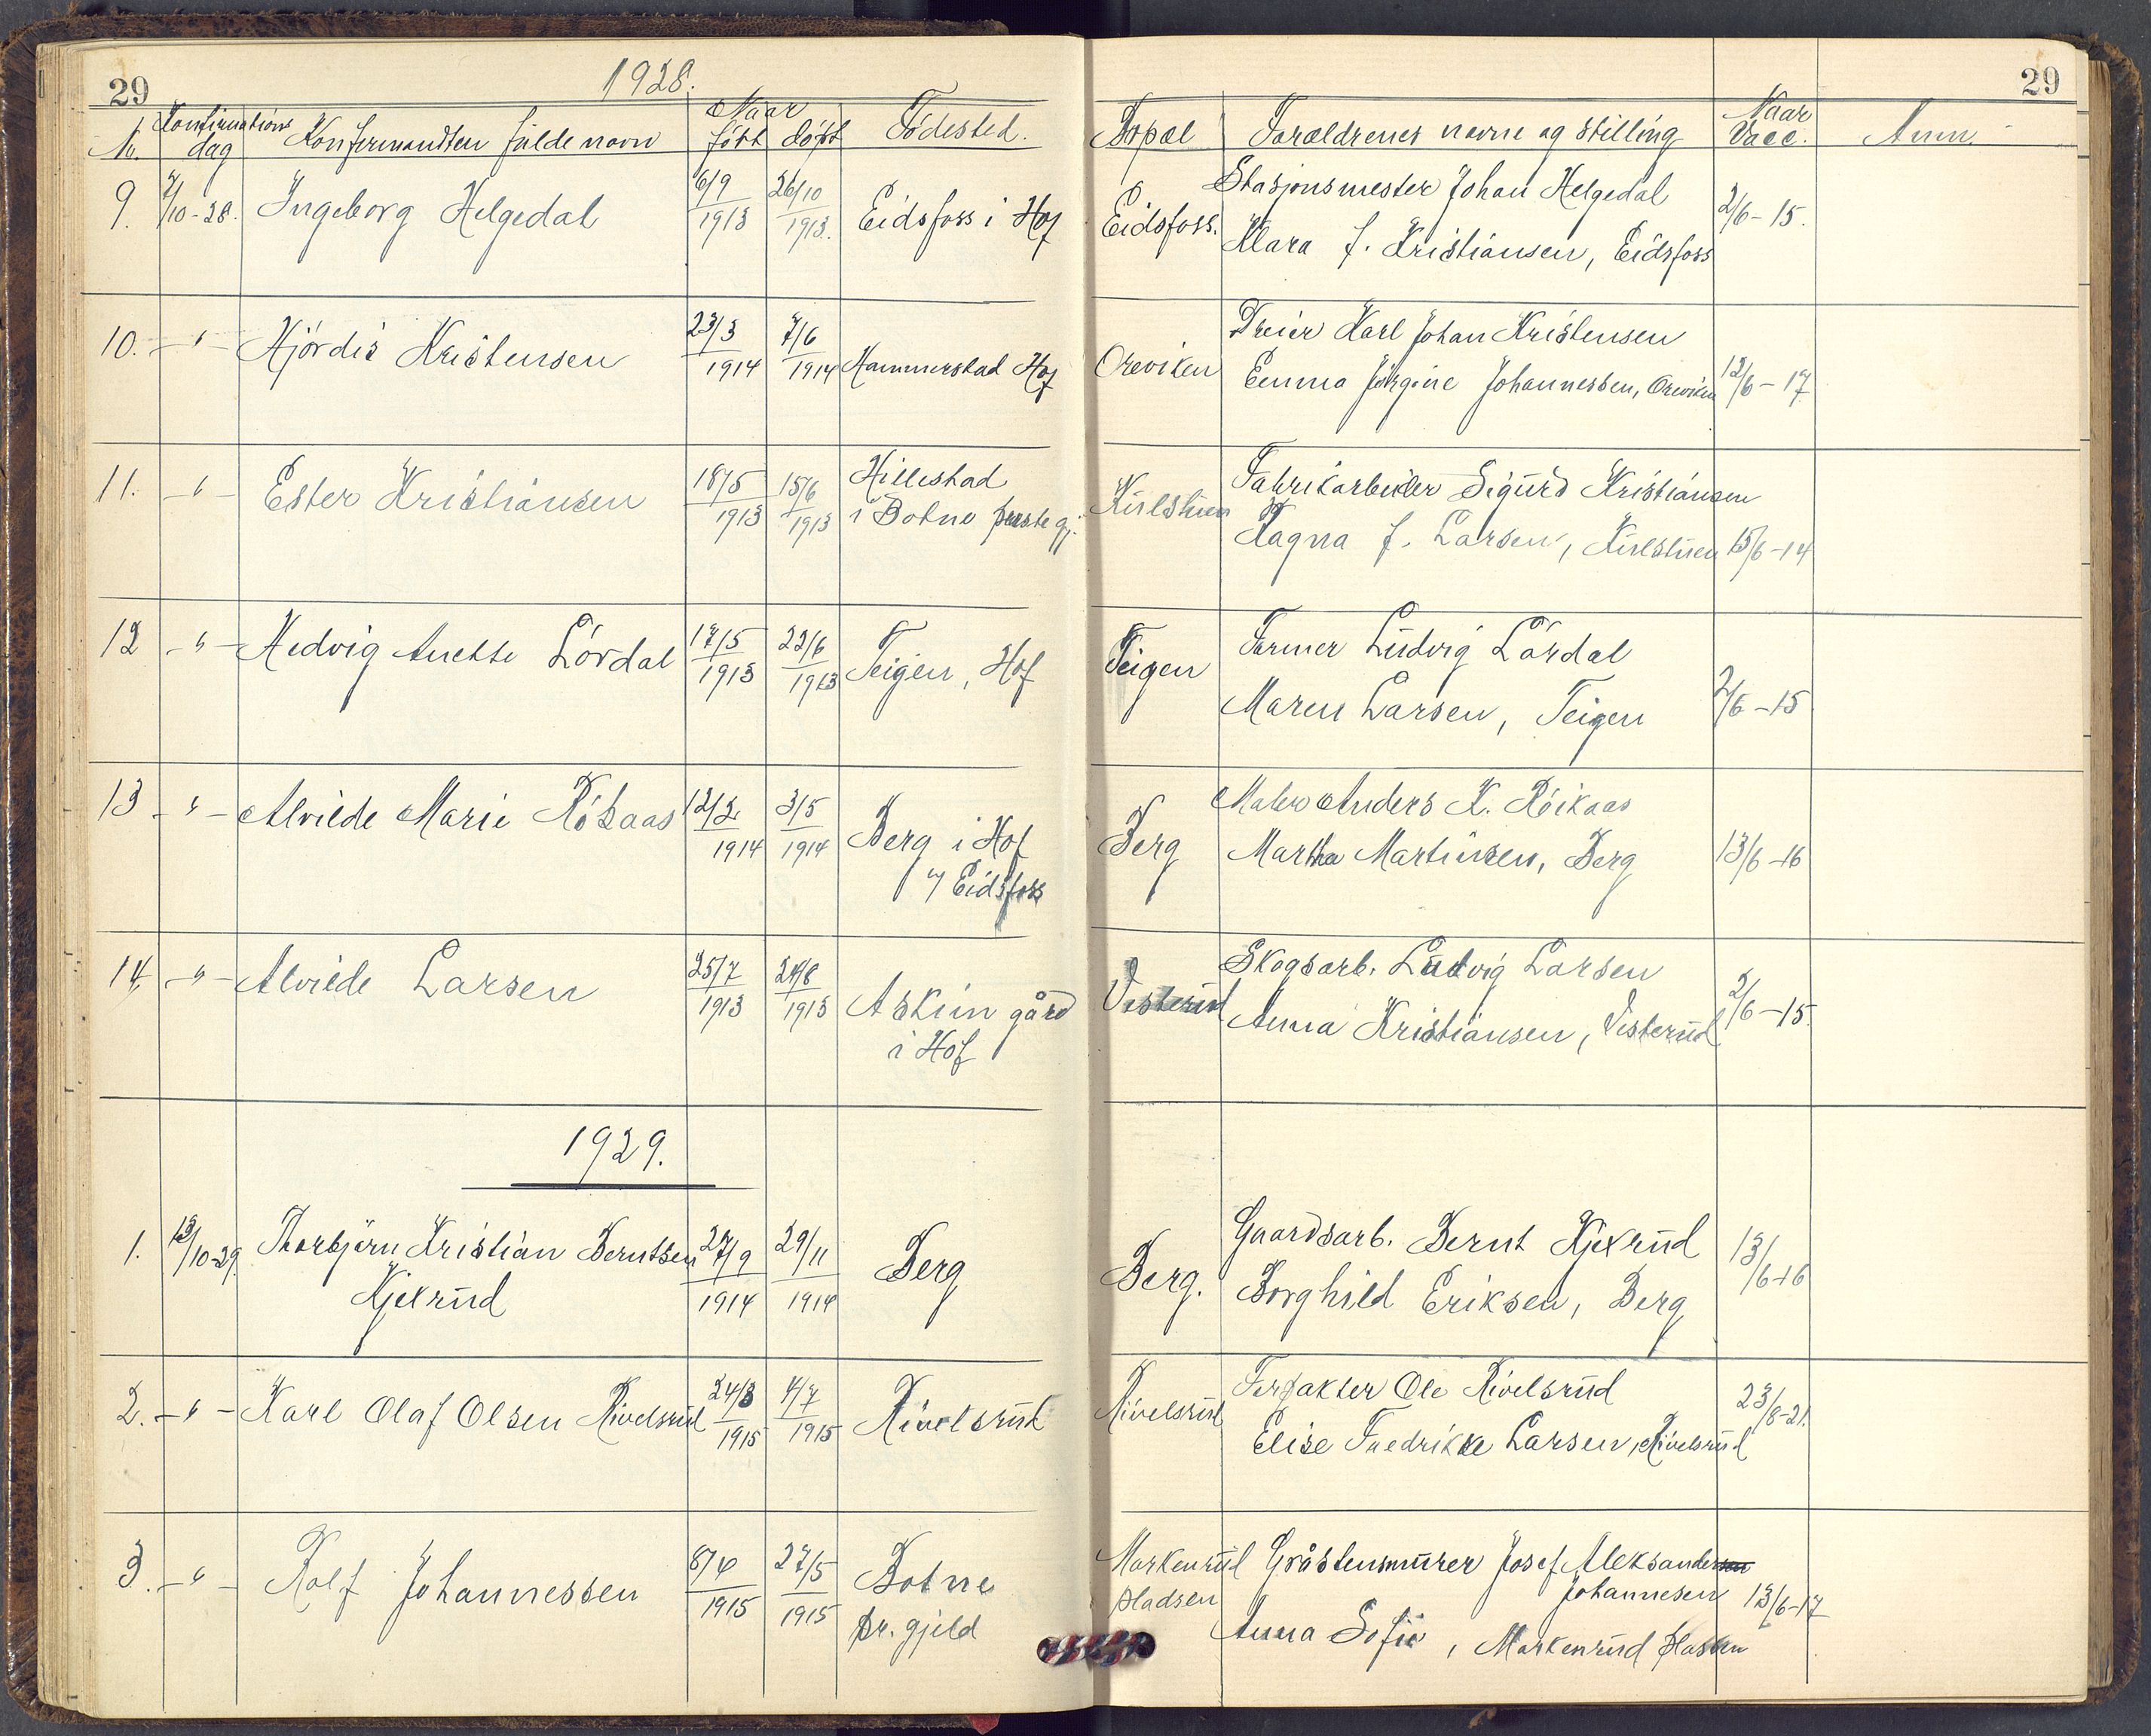 29
1928.
29
N.
Konfirmations dag
Konfirmandten fulde navn
Naar
født
døpt
Födested.
Bopæl
Foræeldrenes navne og stilling
Naar Vacc.
Anm.
9. 7/10-28. Ingeborg Helgedal 6/9 1913 26/10 1913. Eidsfoss i Hof Eidsfoss. Stasjonsmester Johan Helgedal
Klara f. Kristiansen, Eidsfoss 2/6-15.
10. -"- Hjördis Kristensen 23/3 1914 7/6 1914 Hammerstad Hof Oreviken Dreier Karl Johan Kristensen
Emma Jörgine Johannessen, Oreviken 12/6-17
11. -"- Ester Kristiansen 18/5 1913 15/6 1913 Hillestad
i Botne prestegj. Kulstuen Fabrikarbeider Sigurd Kristiansen
Ragna f. Larsen, Kulstuen 15/6-14
12 -"- Hedvig Anette Lördal 17/5 1913 22/6 1913 Teigen, Hof Teigen Former Ludvig Lördal
Maren Larsen, Teigen 2/6-15
13 -"- Alvilde Marie Rökaas 12/2 1914 3/5 1914 Berg i Hof
"/ Eidsfoss Berg Maler Anders K. Röikaas
Martha Martinsen, Berg 13/6-16
14, -"- Alvilde Larsen 25/7 1913 24/8 1913 Askim gård
i Hof Vesterud Skogsarb. Ludvig Larsen
Anna Kristiansen, Vesterud 2/6-15.
1929.
1. 13/10-29. Thorbjörn Kristian Berntsen
Kjexrud 27/9 1914 29/11 1914 Berg Berg. Gaardsarb. Bernt Kjexrud
Borghild Eriksen, Berg 13/6-16
2. -"- Karl Olaf Olsen Rivelsrud 24/3 1915 4/7 1915 Rivelsrud Rivelsrud Ole Rivelsrud
Elise Fredrikke Larsen, Rivelsrud 23/8-21.
3. -"- Rolf Johannessen 8/4 1915 27/5 1915 Botne
pr. gjeld Markenrud
pladsen Gråstensmurer Josef Aleksander
Johannesen
Anna Sofie, Markenrud plassen 13/6-17